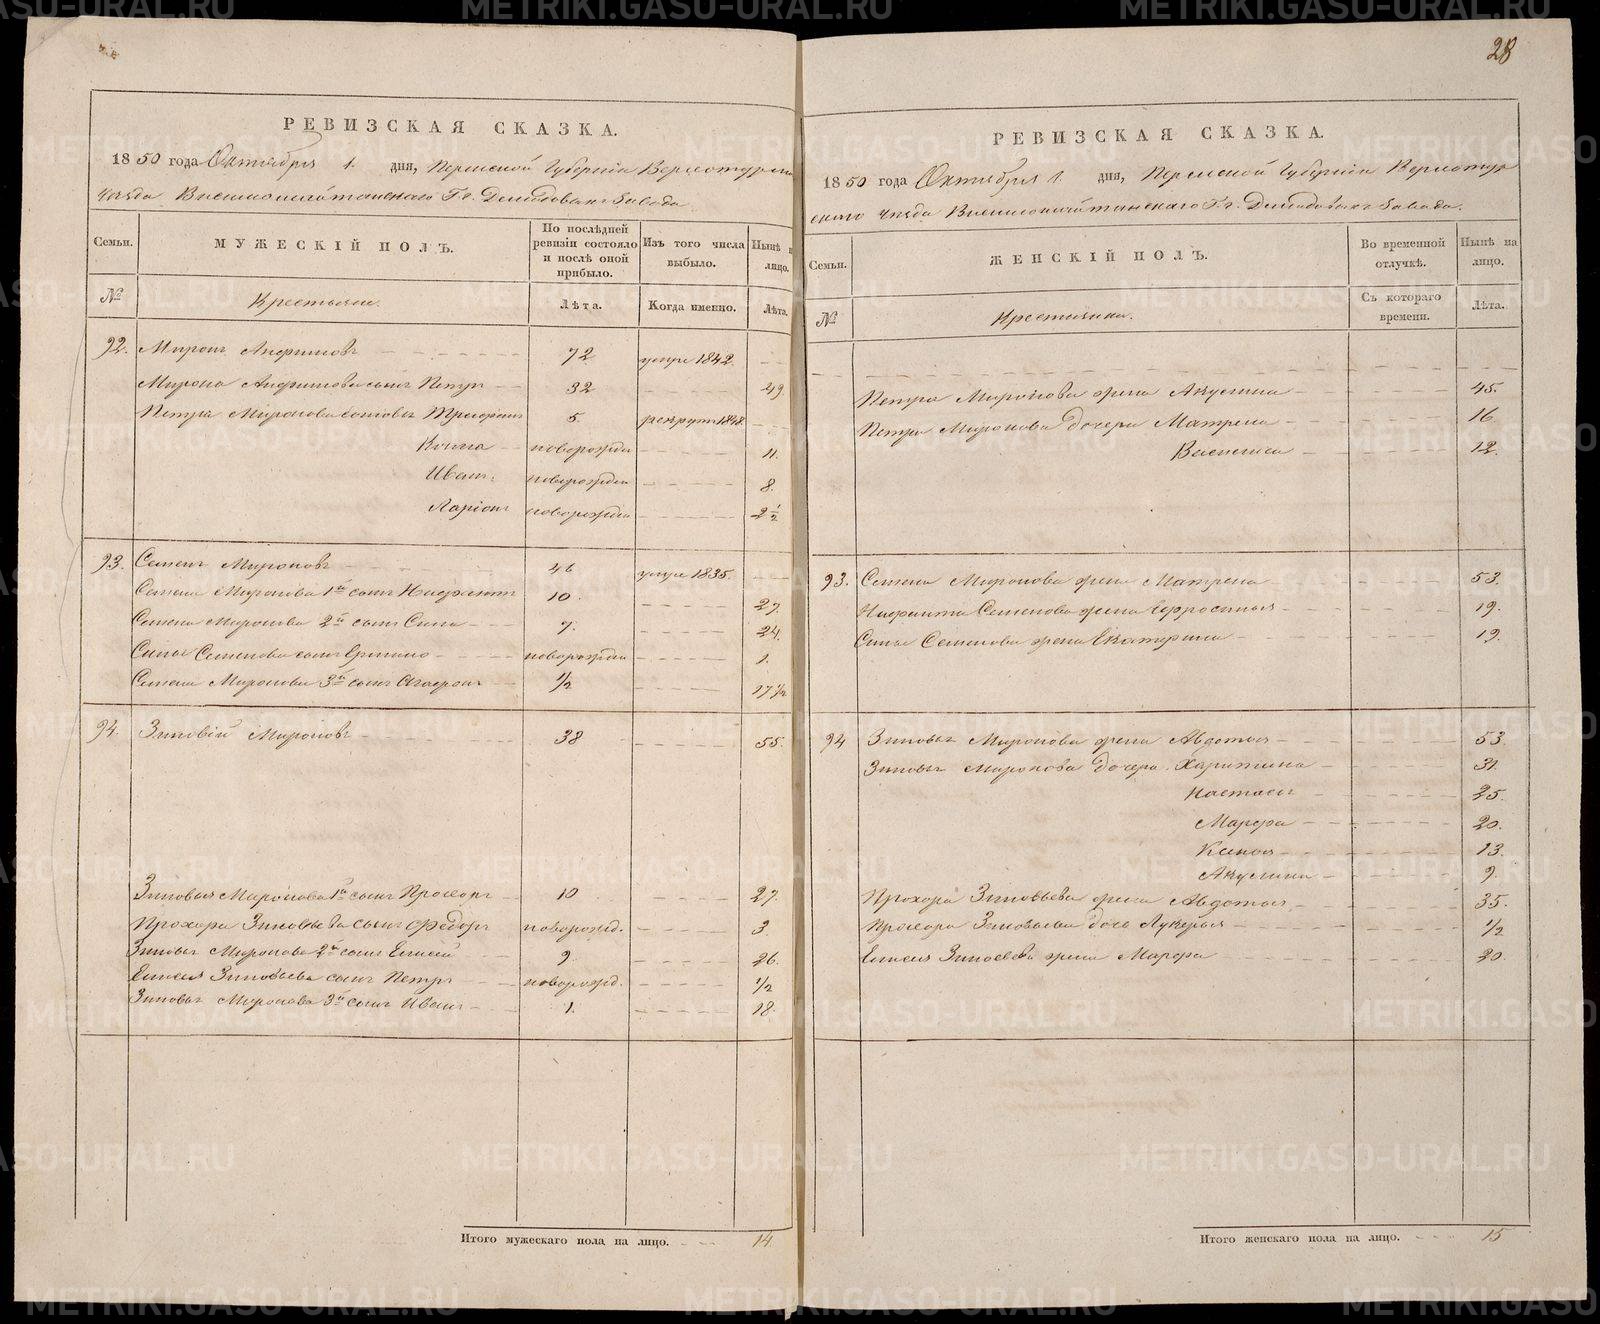 28
РЕВИЗСКАЯ СКАЗКА.
1850 года Октября 1. дня, Пермской Губерніи Верхотурска
Уѣзда Гг. Демидовыхъ Завода.
Семьи.
МУЖЕСКІЙ ПОЛЪ.
По послѣдней ревизіи состояло и послѣ оной прибыло.
Изъ того числа выбыло.
Нынѣ лицо.
№
Крестьяне.
Лѣта.
Когда именно.
Лѣта.
92. Миронъ 72 умре 1842.
Мирона сынъ Петръ 32 49
Петра Миронова сыновья 5. рекрутъ 1848.
новорожден 11.
Иванъ новорожден 8.
Ларіонъ новорожден 2 1/2
93. Семенъ Мироновъ 46 умре 1835.
Семена Миронова 1й сынъ 10. 27.
Семена Миронова 2й сынъ Сила 7. 24.
Силы Семенова сынъ новорожден 1.
Семена Миронова 3й сынъ 1/2 17 1/2
94. Зиновій Мироновъ 38 55.
Зиновья Миронова 1й сынъ Прохоръ 10 27.
Прохора Зиновьева сынъ Федоръ новорожд. 3.
Зиновья Миронова 2й сынъ Елисей 9 26.
Елисея Зиновьева сынъ Петръ новорожд. 1/2
Зиновья Миронова 3й сынъ Иванъ 1. 18.
Итого мужескаго пола на лицо. 14.
РЕВИЗСКАЯ СКАЗКА.
1850 года Октября 1. дня, Пермской Губерніи Верхотур
скаго Уѣзда Гг. Демидовыхъ Завода.
Семьи.
ЖЕНСКІЙ ПОЛЪ.
Во временной отлучкѣ.
Нынѣ на лицо.
№
Съ котораго времени.
Лѣта.
Петра Миронова жена Акулина 45.
Петра Миронова дочери Матрена 16.
12.
93. Семена Миронова жена Матрена 53.
Семенова жена Ефросинья 19.
Силы Семенова жена Екатерина 19.
94 Зиновья Миронова жена Авдотья 53.
Зиновья Миронова дочери Харитина 31.
Настасья 25.
Марфа 20.
Ксенья 13.
Акулина 9.
Прохора Зиновьева жена Авдотья 35.
Прохора Зиновьева дочь Лукерья 1/2
Елисея Зиновьева жена Марфа 20.
Итого женскаго пола на лицо. 15
METRIKI.GASO-URAL.RU